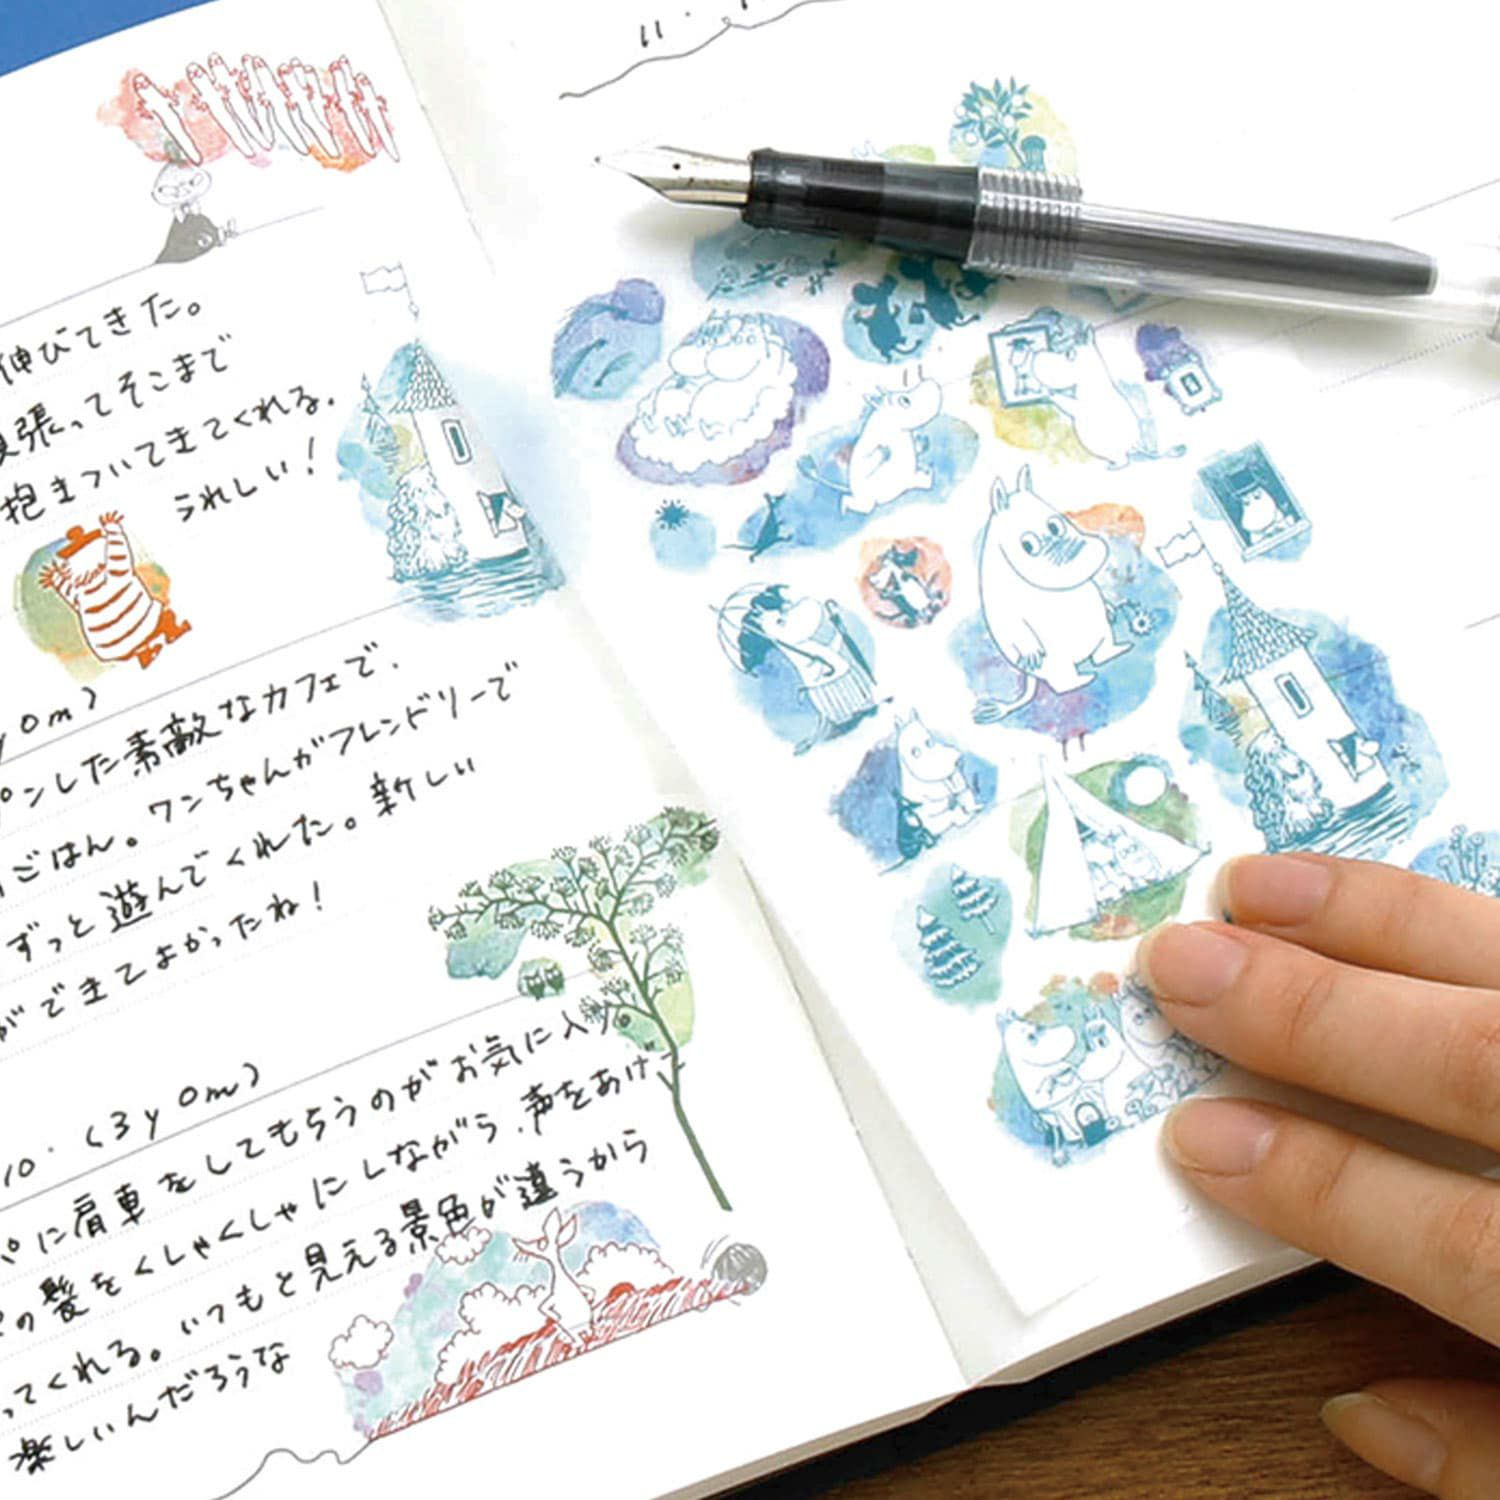 11.
伸びてきた。
張ってそこまで
抱きついてきてくれる。
うれしい！
y0m)
プンした素敵なカフェで、
ごはん。ワンちゃんがフレンドリーで
ずっと遊んでくれた。新しい
ができてよかったね！
10.(3y0m)
パに肩車をしてもらうのがお気に入り。
の髪をくしゃくしゃにしながら、声をあげて
ってくれる。いつもと見える景色が違うから
楽しいんだろうな